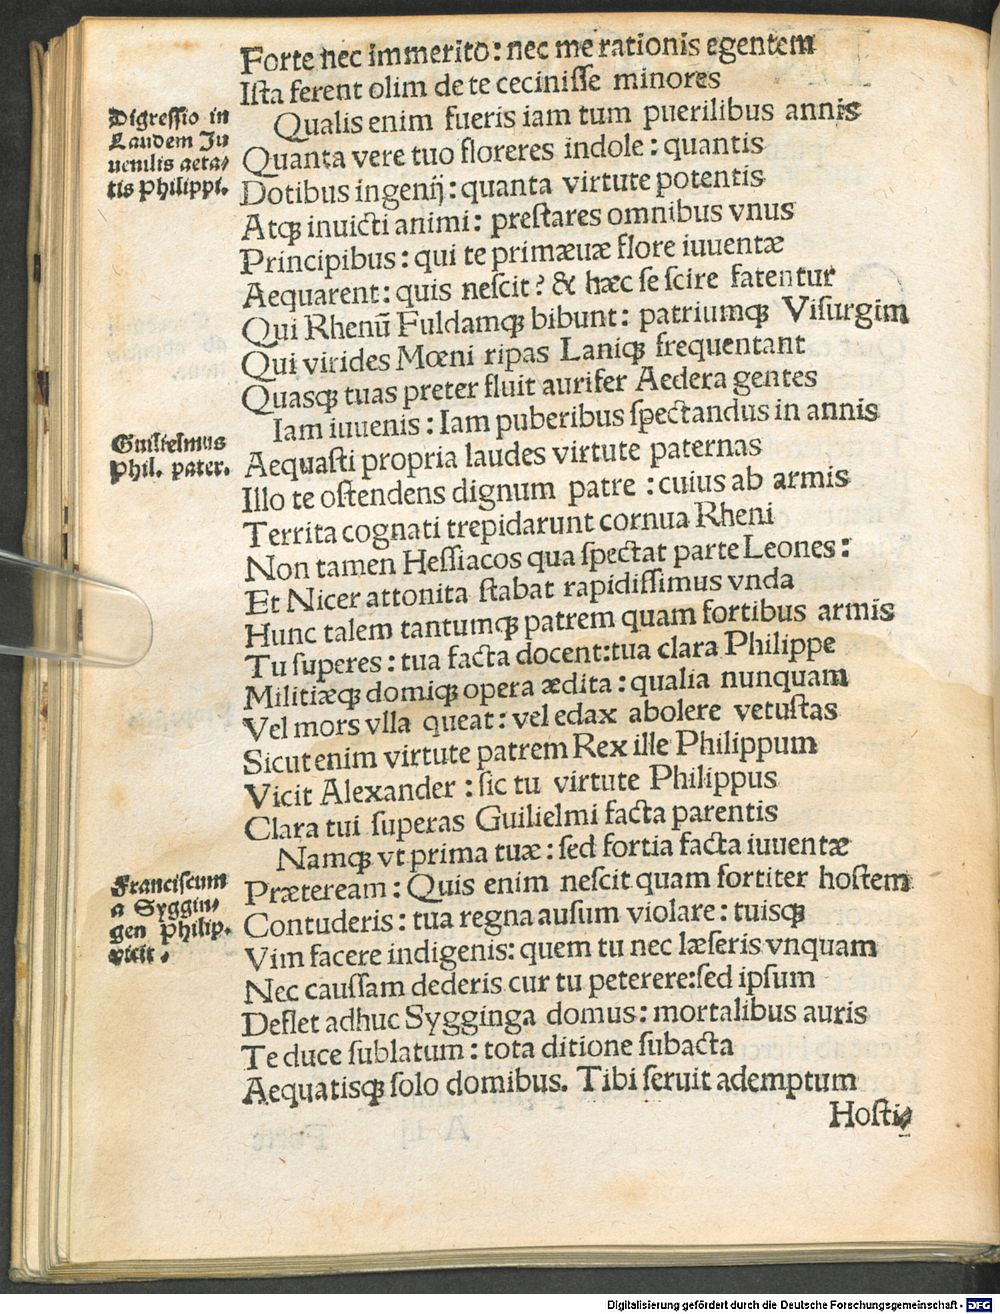 Forte nec immerito: nec me rationis egentem
Iſta ferent olim de te ceciniſſe minores
Digreſſio in
Laudem Ju
uenilis aeta⸗
tis Philippi.
Qualis enim fueris iam tum puerilibus annis
Quanta vere tuo floreres indole: quantis
Dotibus ingenij: quanta virtute potentis
Atqꝫ inuicti animi: preſtares omnibus vnus
Principibus: qui te primæuæ flore iuuentæ
Aequarent: quis neſcit? & hæc ſe ſcire fatentur
Qui Rhenū Fuldamqꝫ bibunt: patriumqꝫ Viſurgim
Qui virides Mœni ripas Laniqꝫ frequentant
Quasqꝫ tuas preter fluit aurifer Aedera gentes
Iam iuuenis: Iam puberibus ſpectandus in annis
Guilielmus
Phil. pater.
Aequaſti propria laudes virtute paternas
Illo te oſtendens dignum patre: cuius ab armis
Territa cognati trepidarunt cornua Rheni
Non tamen Heſſiacos qua ſpectat parte Leones:
Et Nicer attonita ſtabat rapidiſſimus vnda
Hunc talem tantumqꝫ patrem quam fortibus armis
Tu ſuperes: tua facta docent: tua clara Philippe
Militiæqꝫ domiqꝫ opera ædita: qualia nunquam
Vel mors vlla queat: vel edax abolere vetuſtas
Sicut enim virtute patrem Rex ille Philippum
Vicit Alexander: ſic tu virtute Philippus
Clara tui ſuperas Guilielmi facta parentis
Namqꝫ vt prima tuæ: ſed fortia facta iuuentæ
Franciſcum
a Syggin⸗
gen Philip.
vicit.
Præteream: Quis enim neſcit quam fortiter hoſtem
Contuderis: tua regna auſum violare: tuisqꝫ
Vim facere indigenis: quem tu nec læſeris vnquam
Nec cauſſam dederis cur tu peterere: ſed ipſum
Deflet adhuc Sygginga domus: mortalibus auris
Te duce ſublatum: tota ditione ſubacta
Aequatisqꝫ ſolo domibus. Tibi ſeruit ademptum
Hoſti⸗
Digitalisierung gefördert durch die Deutsche Forschungsgemeinschaft - DFG